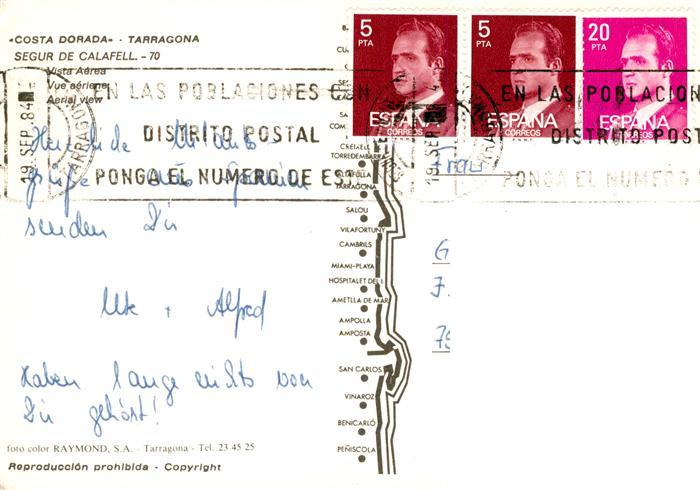 «COSTA DORADA» - TARRAGONA
SEGUR DE CALAFELL. - 70
Vista Aérea
Vue aérienne
Aerial view
19 SEP. 84
TARRAGONA
EN LAS POBLACIONES CON
DISTRITO POSTAL
PONGA EL NUMERO DE ESTE
Herzliche Urlaubs-
grüße aus Spanien
senden Dir
Ute + Alfred
Haben lange nichts von
Dir gehört!
foto color RAYMOND, S.A. - Tarragona - Tel. 23 45 25
Reproducción prohibida - Copyright
CREIXELL
TORREDEMBARRA
ALTAFULLA
TARRAGONA
SALOU
VILAFORTUNY
CAMBRILS
MIAMI-PLAYA
HOSPITALET DE I.
AMETLLA DE MAR
AMPOLLA
AMPOSTA
SAN CARLOS
VINAROZ
BENICARLÓ
PEÑISCOLA
5 PTA
ESPAÑA
CORREOS
5 PTA
ESPAÑA
CORREOS
20 PTA
ESPAÑA
CORREOS
19 SEP. 84
EN LAS POBLACIONES
DISTRITO POST
PONGA EL NUMERO
G
J.
75